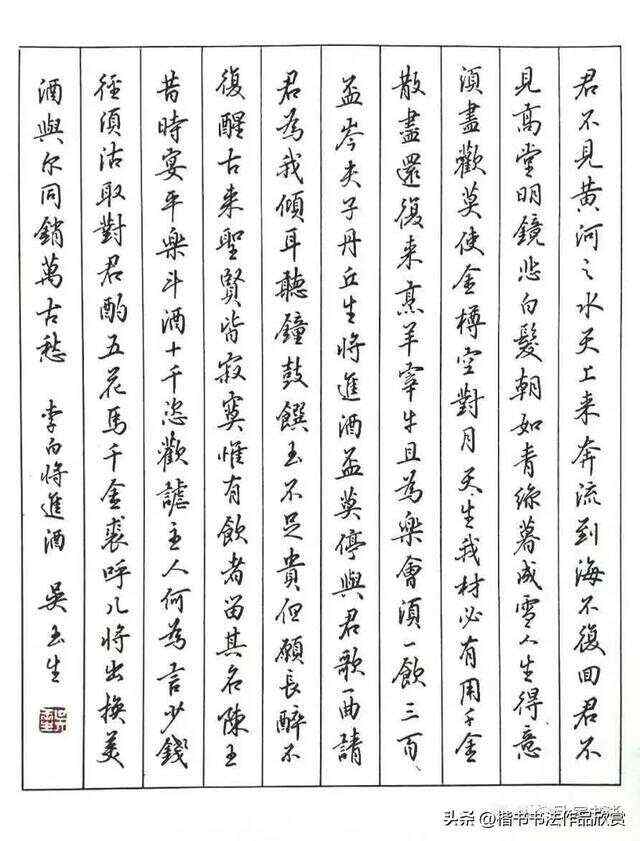 君不見黃河之水天上来奔流到海不復回君不
見高堂明鏡悲白髮朝如青絲暮成雪人生得意
須盡歡莫使金樽空對月天生我材必有用千金
散盡還復来烹羊宰牛且為樂會須一飲三百
盃岑夫子丹丘生將進酒盃莫停與君歌一曲請
君為我傾耳聽鐘鼓饌玉不足貴但願長醉不
復醒古来聖賢皆寂寞惟有飲者留其名陳王
昔時宴平樂斗酒十千恣歡謔主人何為言少錢
徑須沽取對君酌五花馬千金裘呼儿將出換美
酒與尔同銷萬古愁 李白將進酒 吳玉生
头条 @楷书书法作品欣赏